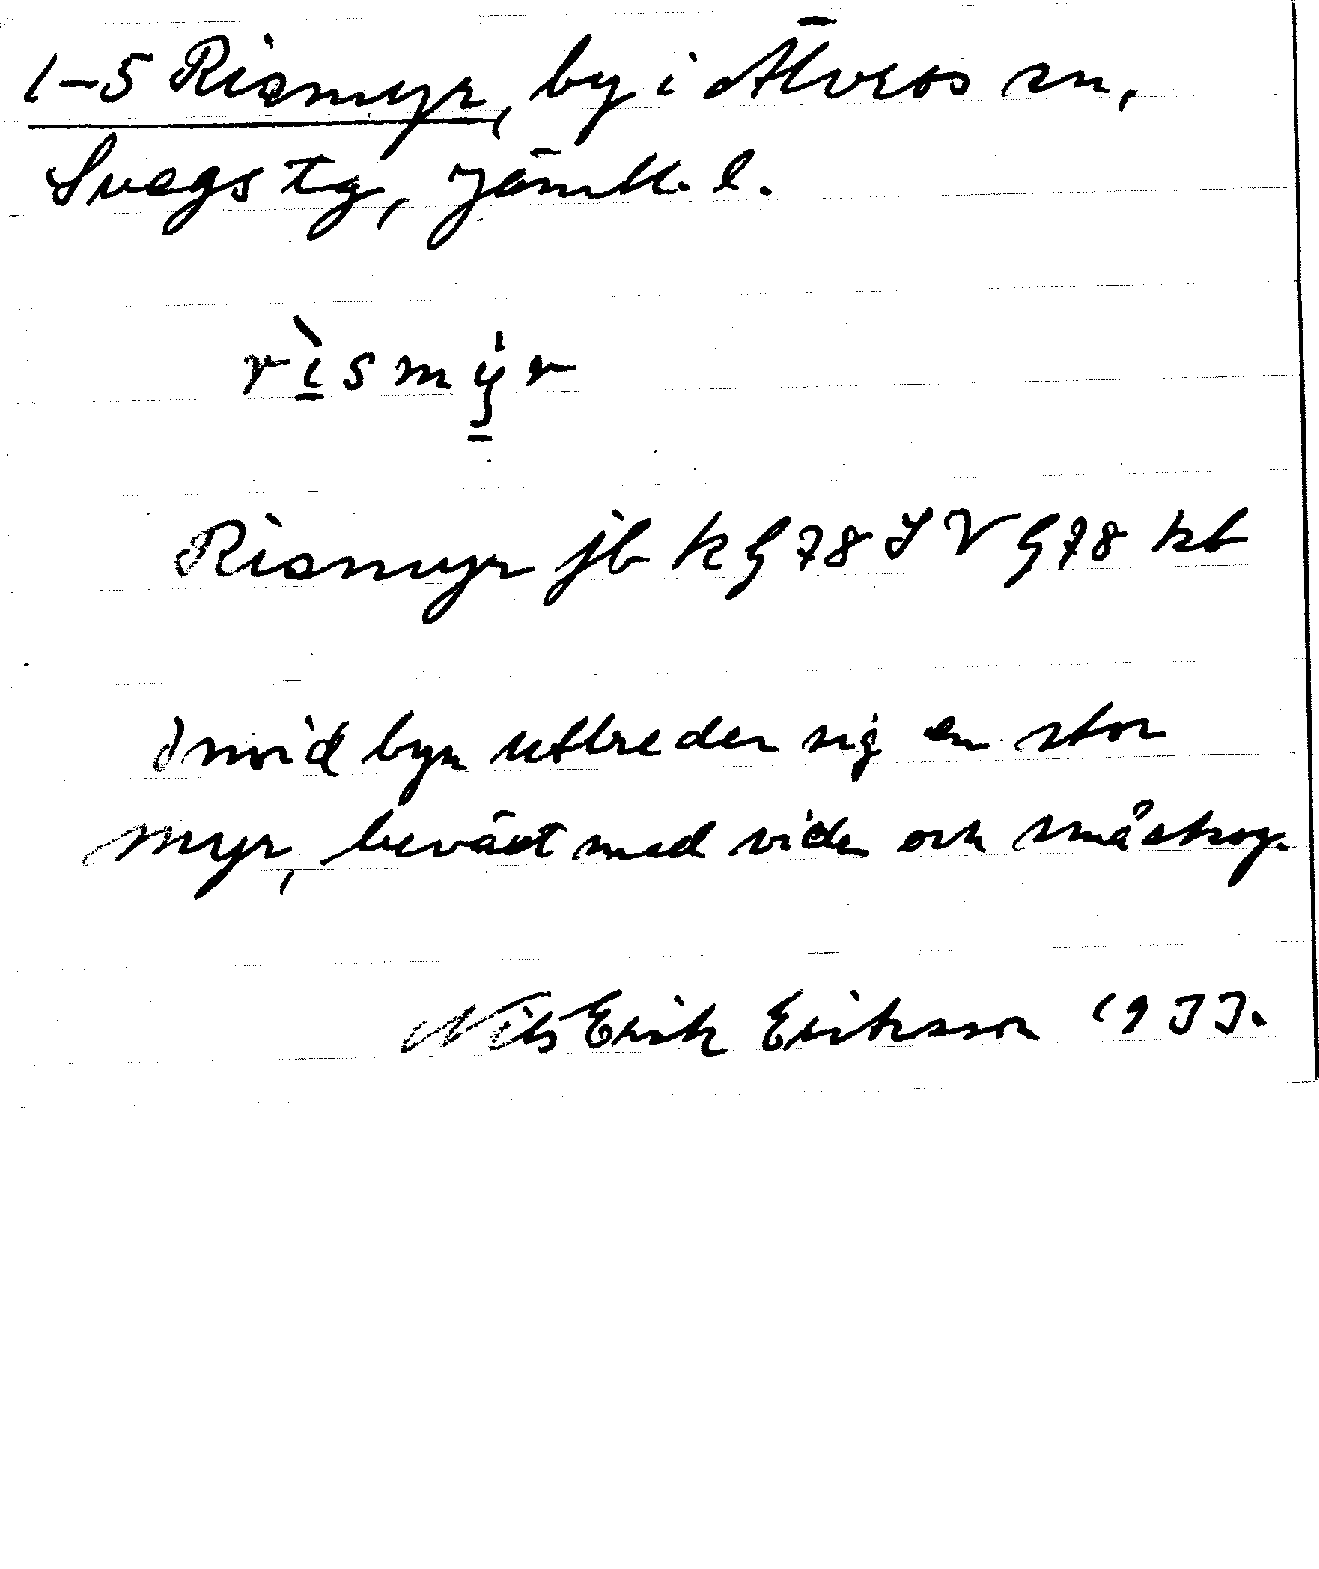 1-5 Rismyr, by i Älvros sn,
Svegs tg, Jämtl. l.
rìsmy̍r
Rismyr jb k G 78 GV G 78 kb
Invid byn utbreder sig en stor
myr, beväxt med vide och småskog.
Nils Erik Eriksson 1933.